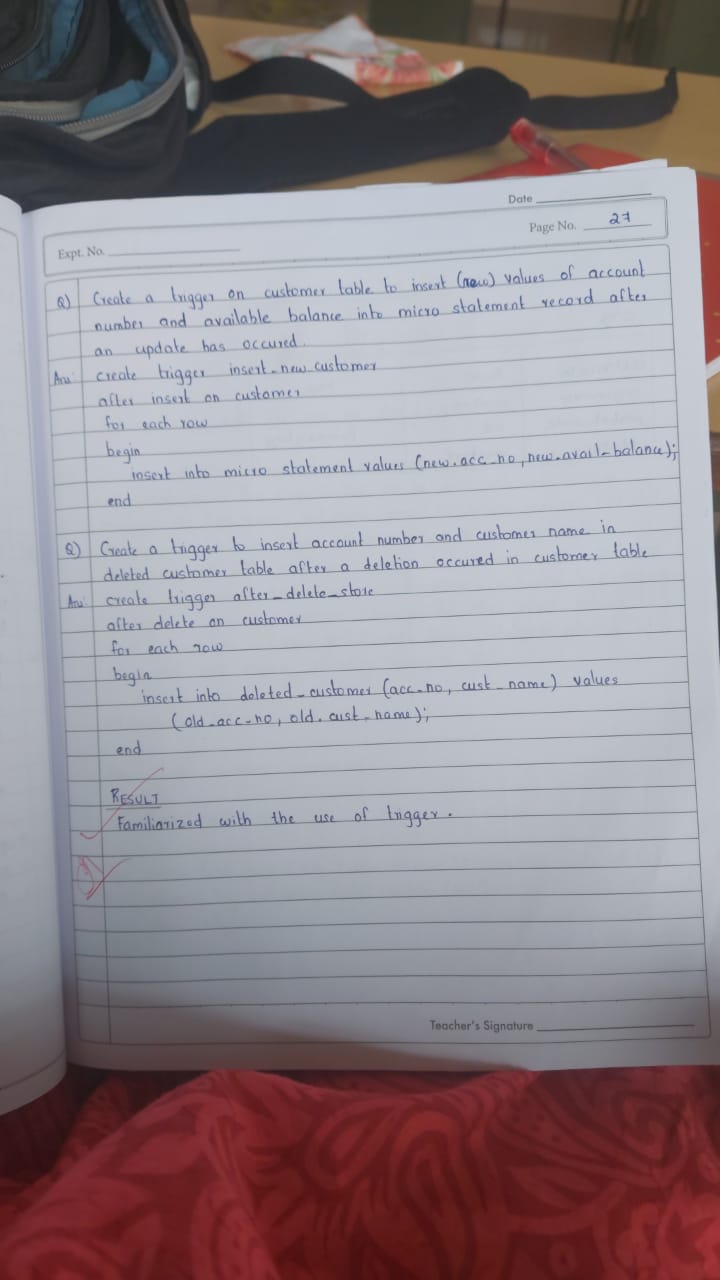 Date
Page No. 27
Expt. No.
Q) Create a trigger on customer table to insert (new) values of account
number and available balance into micro statement record after
an update has occured.
Ans: create trigger insert_new_customer
after insert on customer
for each row
begin
insert into micro statement values (new.acc_no, new.avail_balance);
end
Q) Create a trigger to insert account number and customer name in
deleted customer table after a deletion occured in customer table
Ans: create trigger after_delete_store
after delete on customer
for each row
begin
insert into deleted_customer (acc_no, cust_name) values
(old_acc_no, old.cust_name);
end
RESULT
Familiarized with the use of trigger.
Teacher's Signature